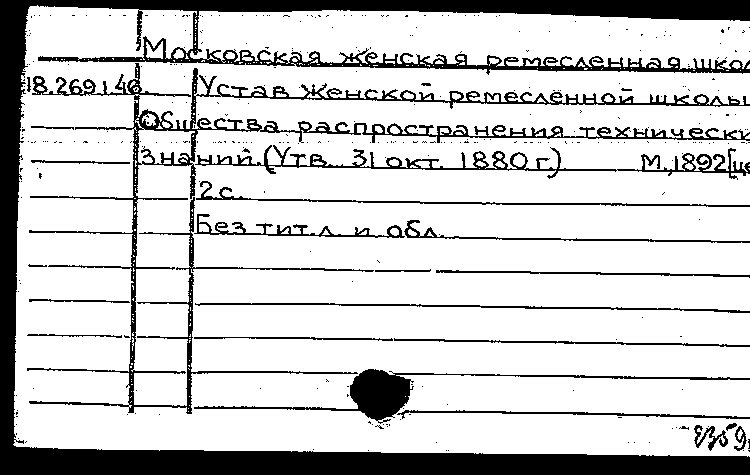 Московская женская ремесленная шко
18.269.1.46. Устав женской ремесленной школы
Общества распространения технически
знаний. (Утв. 31 окт. 1880 г.) М., 1892 [це
2 с.
Без тит. л. и обл.